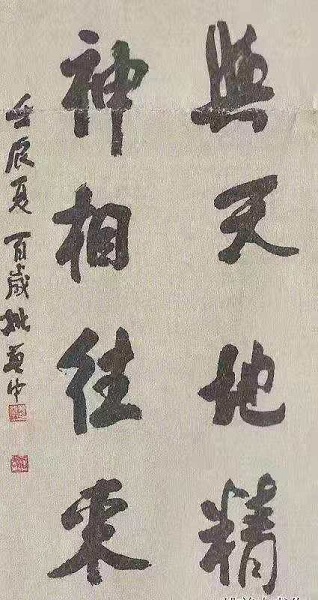 與天地精
神相往来
壬辰夏百歲姚奠中